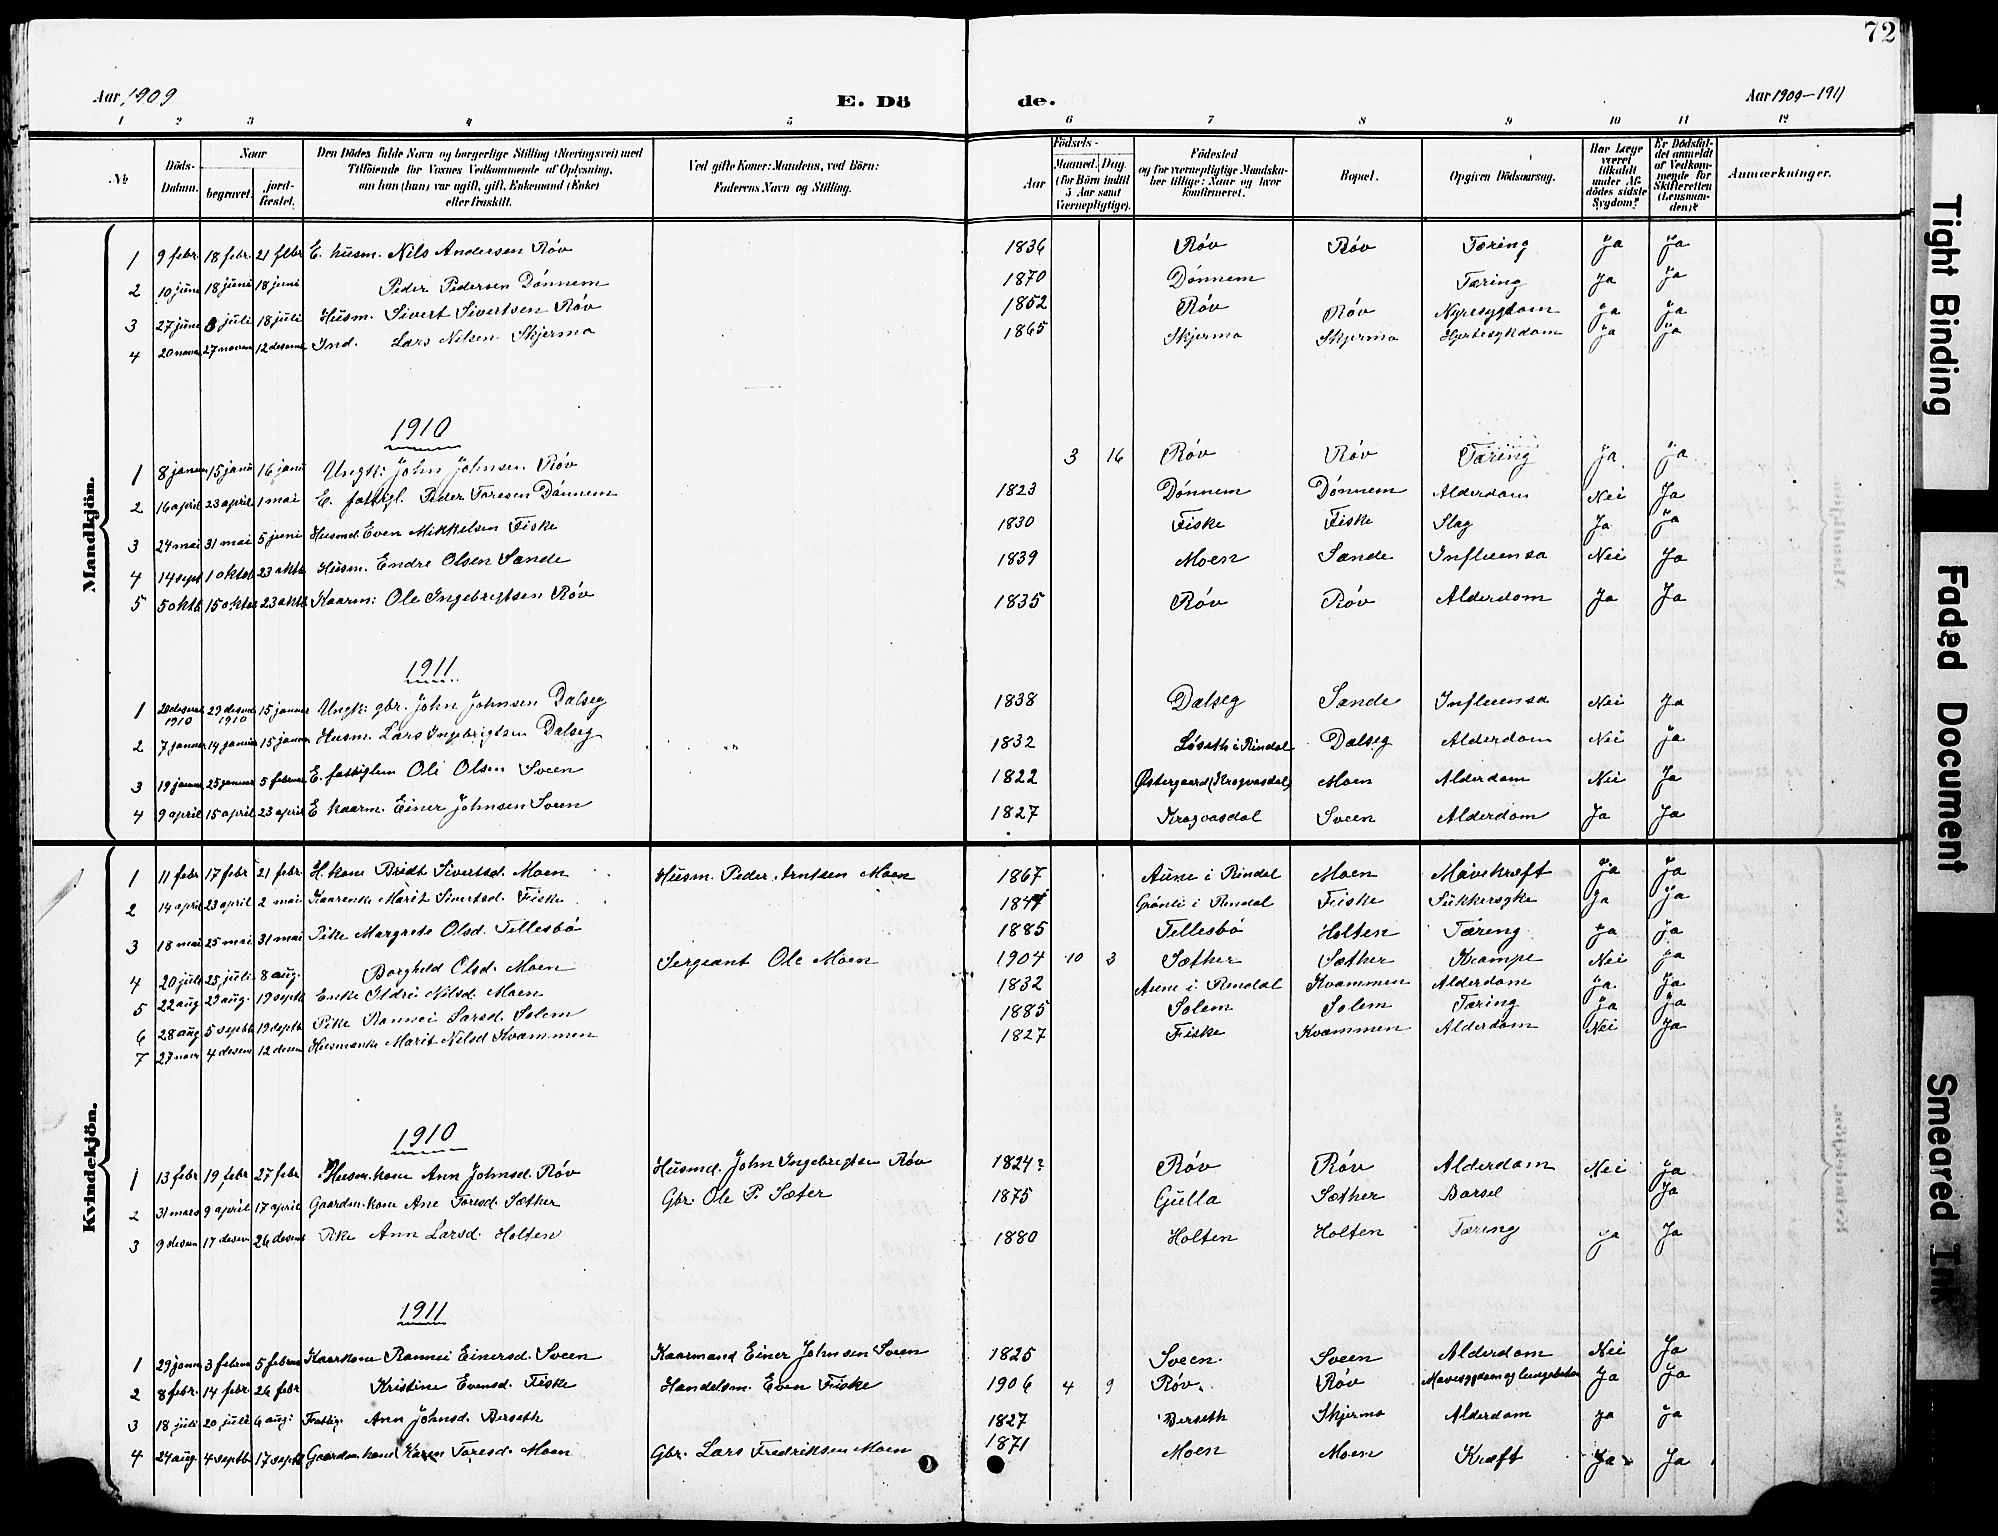 72
Aar 1909 E. Dö de. Aar 1909-1911
1 2 3 4 5 6 7 8 9 10 11 12
№ Döds-Datum. Naar begravet. jord-fæstet. Den Dödes fulde Navn og borgerlige Stilling (Næringsvei) med Tilföiende for Voxnes Vedkommende af Oplysning, om han (hun) var ugift, gift, Enkemand (Enke) eller fraskilt. Ved gifte Koner: Mandens, ved Börn: Faderens Navn og Stilling. Födsels- Aar Maaned. Dag. (for Börn indtil 5 Aar samt Værnepligtige). Födested og for værnepligtige Mandskaber tillige: Naar og hvor konfirmeret. Bopæl. Opgiven Dödsaarsag. Har Læge været tilkaldt under Afdödes sidste Sygdom? Er Dödsfaldet anmeldt af Vedkommende for Skifteretten (Lensmanden)? Anmærkninger.
Mandkjön.
1 9 febr 18 febr. 21 febr E. husm. Nils Andersen Röv 1836 Röv Röv Tæring Ja Ja
2 10 june 18 juni 18 juni Peder Pedersen Dönnem 1870 Dönnem Tæring Ja Ja
3 27 june juli 18 juli Husm. Sivert Sivertsen Röv 1852 Röv Röv Nyresygdom Ja Ja
4 20 novem 27 novem 12 desemb Ind. Lars Nilsen Skjermo 1865 Skjermo Skjermo Hjertesykdom Ja Ja
1910
1 8 janua 15 janu 16 janu Ungk: John Johnsen Röv 3 16 Röv Röv Tæring Ja Ja
2 16 april 23 april 1 mai E. fattigl. Peder Toresen Dönnem 1823 Dönnem Dönnem Alderdom Nei Ja
3 24 mai 31 mai 5 juni Husmd. Even Mikkelsen Fiske 1830 Fiske Fiske Slag Ja Ja
4 14 sept 1 oktob 23 oktb Husm. Endre Olsen Sande 1839 Moen Sande Influensa Nei Ja
5 5 oktb 15 oktob 23 oktb Kaarm: Ole Ingebrigtsen Röv 1835 Röv Röv Alderdom Ja Ja
1911
1 desemb 1910 29 desemb 1910 15 januar Ungk: gbr. John Johnsen Dalseg 1838 Dalseg Sande Influensa Nei Ja
2 7 januar 14 januar 15 januar Husm. Lars Ingebrigtsen Dalseg 1832 Löseth i Rindal Dalseg Alderdom Nei Ja
3 19 januar 25 januar 5 februar E. fattiglem Ole Olsen Sveen 1822 Østergaard (Krogvasdal) Moen Alderdom Nei Ja
4 9 april 15 april 23 april E kaarm. Einer Johnsen Sveen 1827 Krogvasdal Sveen Alderdom Ja Ja
Kvindekjön.
1 11 febr 17 febr 21 febr. H.kone Bridt Sivertsd. Moen Husm. Peder Arntsen Moen 1867 Aune i Rindal Moen Mavekræft Ja Ja
2 14 april 23 april 2 mai Kaarenke Marit Sivertsd. Fiske Grönli i Rindal Fiske Sukkersyke Ja Ja
3 18 mai 25 mai 31 mai Pike Margrete Olsd. Tellesbö 1885 Tellesbö Holten Tæring Ja Ja
4 20 juli 25 juli 8 aug. Borghild Olsd. Moen Sergeant Ole Moen 1904 10 3 Sæther Sæther Krampe Nei Ja
5 22 aug 29 aug. 19 septb Enke Ildri Nilsd. Moen 1832 Aune i Rindal Kvammen Alderdom Ja Ja
6 28 aug 5 septb 19 septb Pike Rannei Larsd. Solem 1885 Solem Solem Tæring Ja Ja
7 27 novr 4 desem 12 desem Husmanke Marit Nilsd Kvammen 1827 Fiske Kvammen Alderdom Nei Ja
1910
1 13 febr 19 febr 27 febr Husm. kone Ann Johnsd. Röv Husmd. John Ingebrigtsen Röv 1824? Röv Röv Alderdom Nei Ja
2 31 mars 9 april 17 april Gaardm. kone Ane Toresd. Sæther Gbr. Ole P. Sæter 1875 Gjulla Sæther Barsel Ja
3 9 desem 17 desem 26 desemb Pike Ann Larsd. Holten 1880 Holten Holten Tæring Ja Ja
1911
1 29 janua 3 februa 5 februa Kaarkone Rannei Einersd. Sveen Kaarmand Einer Johnsen Sveen 1825 Sveen. Sveen Alderdom Nei Ja
2 8 febr. 14 febr. 26 febr Kristine Evensd. Fiske Handelsm. Even Fiske 1906 4 9 Röv. Röv Mavesygdom og Ja Ja
3 18 juli 20 juli 6 aug: Fattig. Ann Johnsd. Berseth 1827 Berseth Skjermo Alderdom Ja Ja
4 24 aug 4 septb 17 septb Gaardm. kone Karen Toresd. Moen Gbr. Lars Fredriksen Moen 1871 Moen Moen Kræft Ja Ja
Tight Binding
Faded Document
Smeared Ink